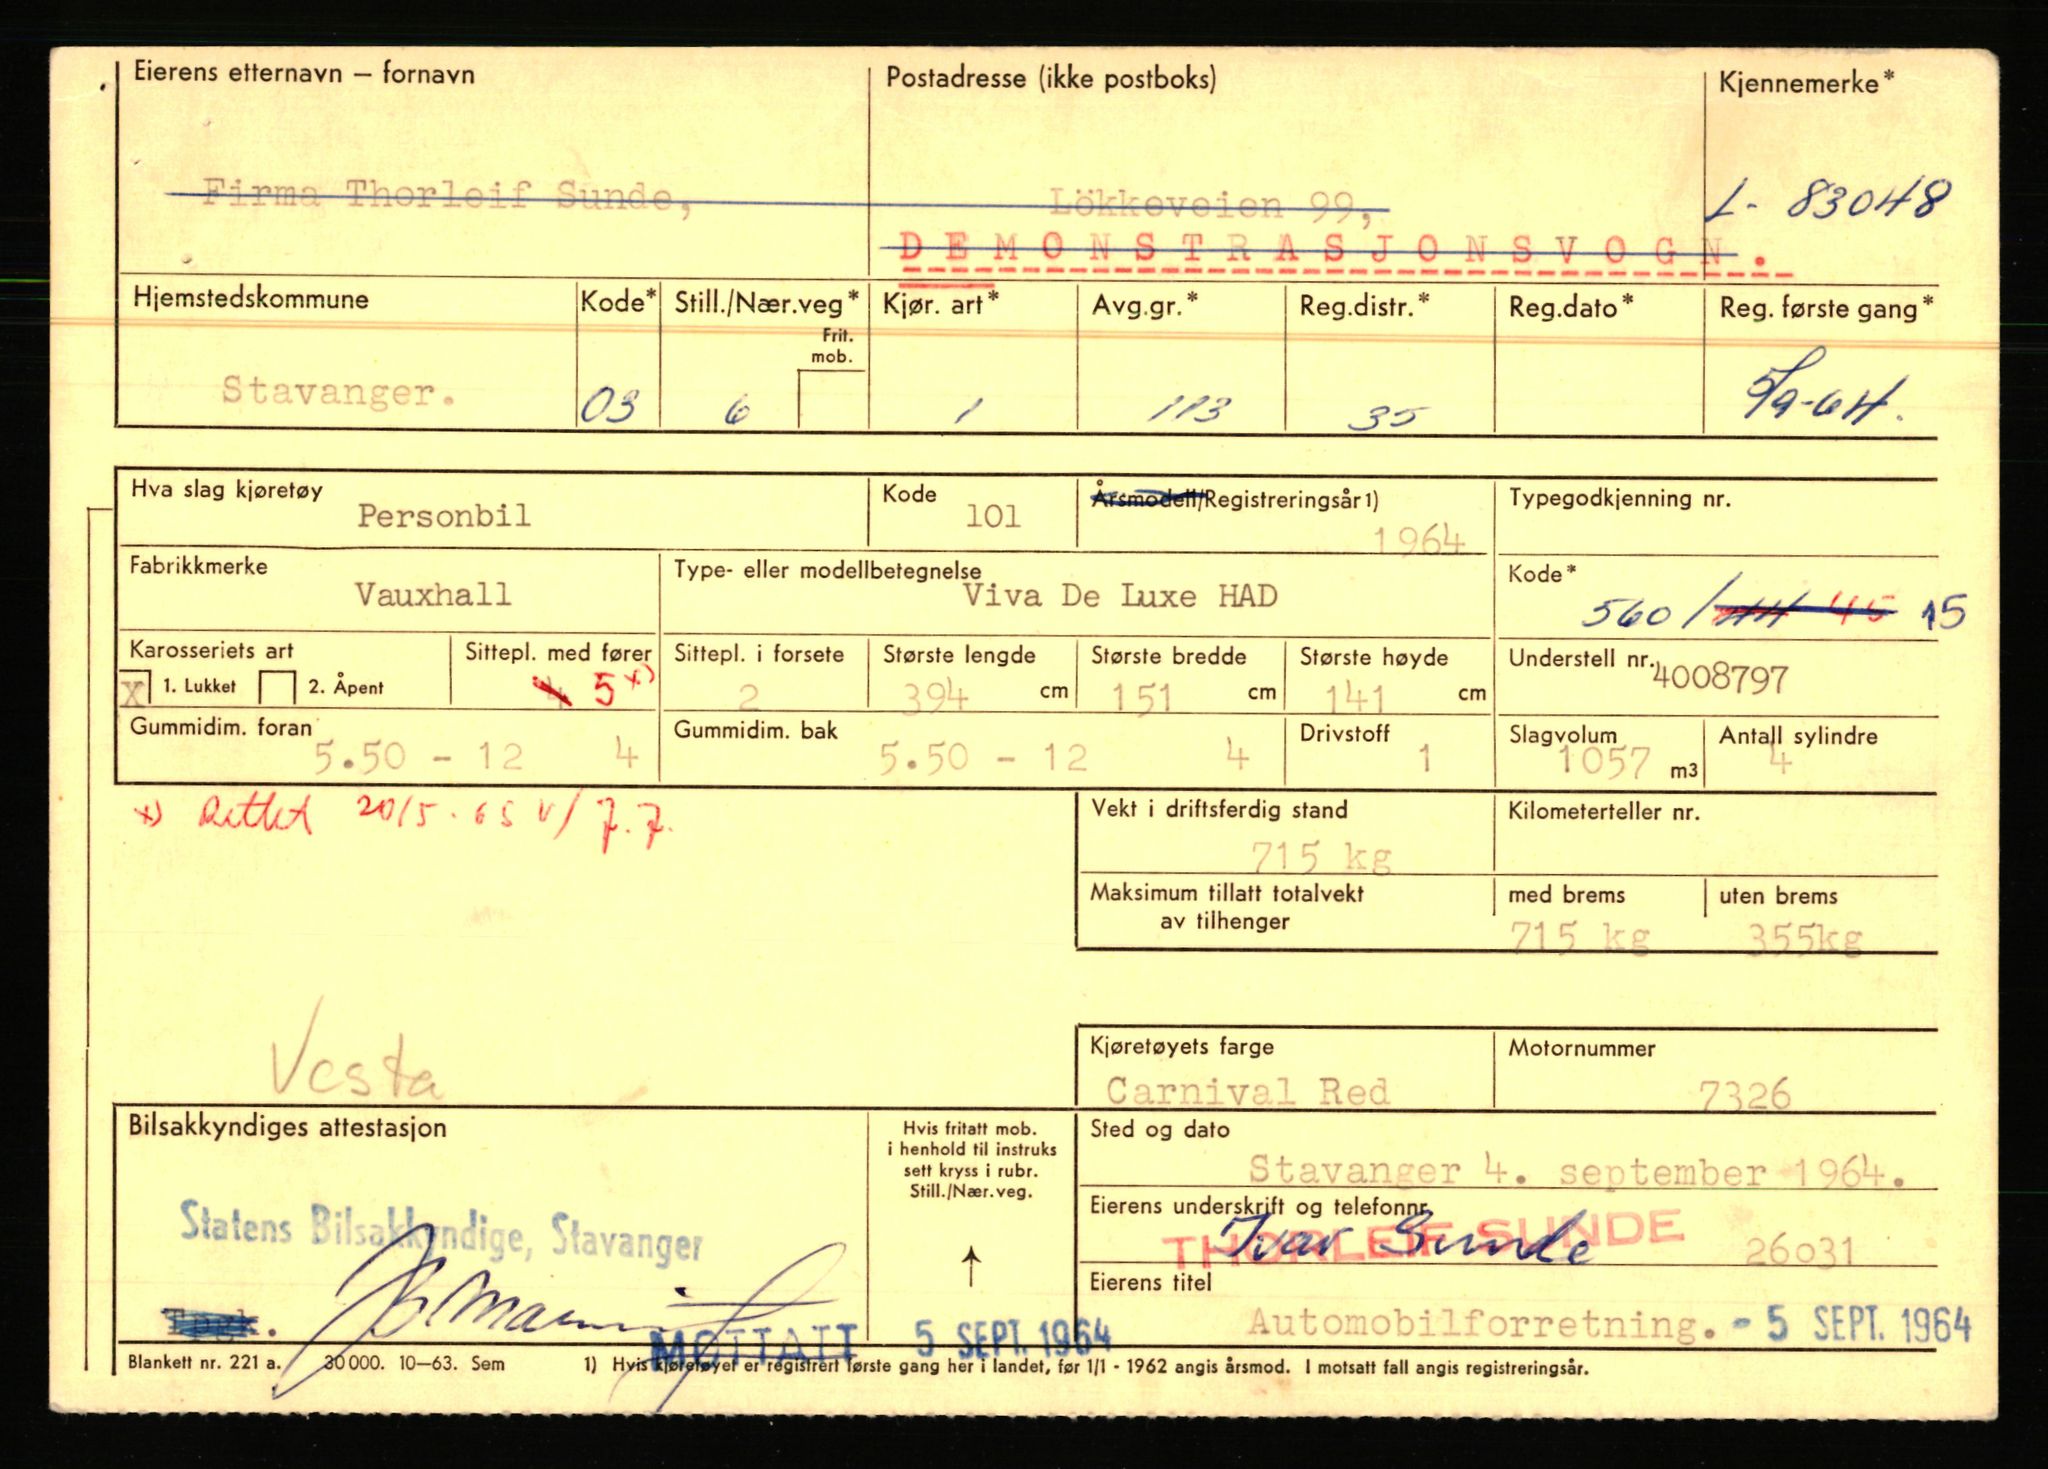 Eierens etternavn – fornavn Postadresse (ikke postboks) Kjennemerke*
Firma Thorleif Sunde, Lökkeveien 99, L- 83048
DEMONSTRASJONSVOGN.
Hjemstedskommune Kode* Still./Nær.veg* Kjør. art* Avg.gr.* Reg.distr.* Reg.dato* Reg. første gang*
Frit.
mob.
Stavanger. 03 6 1 113 35 5/9-64.
Hva slag kjøretøy Kode Årsmodell/Registreringsår1) Typegodkjenning nr.
Personbil 101 1964
Fabrikkmerke Type- eller modellbetegnelse Kode*
Vauxhall Viva De Luxe HAD 560/ 45 15
Karosseriets art Sittepl. med fører Sittepl. i forsete Største lengde Største bredde Største høyde Understell nr.
X 1. Lukket 2. Åpent 4 5 x) 2 394 cm 151 cm 141 cm 4008797
Gummidim. foran Gummidim. bak Drivstoff Slagvolum Antall sylindre
5.50 - 12 4 5.50 - 12 4 1 1057 m3 4
x) Rettet 20/5-65 v/ J.J.
Vekt i driftsferdig stand Kilometerteller nr.
715 kg
Maksimum tillatt totalvekt med brems uten brems
av tilhenger
715 kg 355kg
Vesta
Kjøretøyets farge Motornummer
Carnival Red 7326
Bilsakkyndiges attestasjon
Hvis fritatt mob.
i henhold til instruks
sett kryss i rubr.
Still./Nær.veg.
Sted og dato
Stavanger 4. september 1964.
Eierens underskrift og telefonnr.
THORLEIF SUNDE
Ivar Sunde 26031
Statens Bilsakkyndige, Stavanger
Eierens titel
Automobilforretning. - 5 SEPT. 1964
MOTTATT 5 SEPT. 1964
Blankett nr. 221 a. 30 000. 10–63. Sem 1) Hvis kjøretøyet er registrert første gang her i landet, før 1/1 - 1962 angis årsmod. I motsatt fall angis registreringsår.